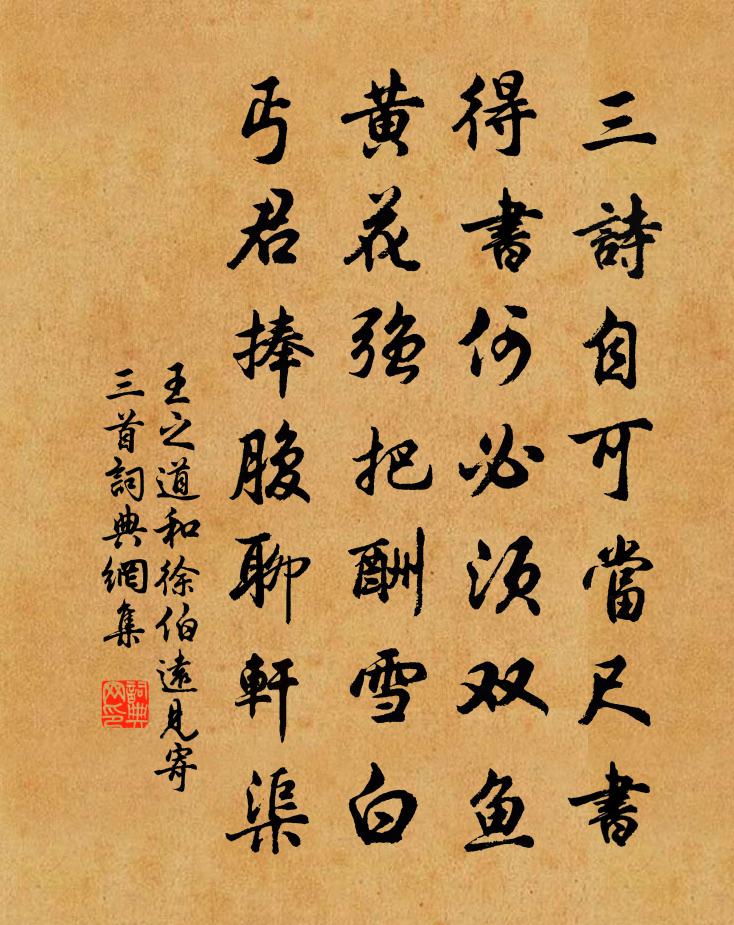 三詩自可當尺書
得書何必須双鱼
黄花强把酬雪白
丐君捧腹聊軒渠
王之道和徐伯遠見寄
三首詞典網集
詞典
网印